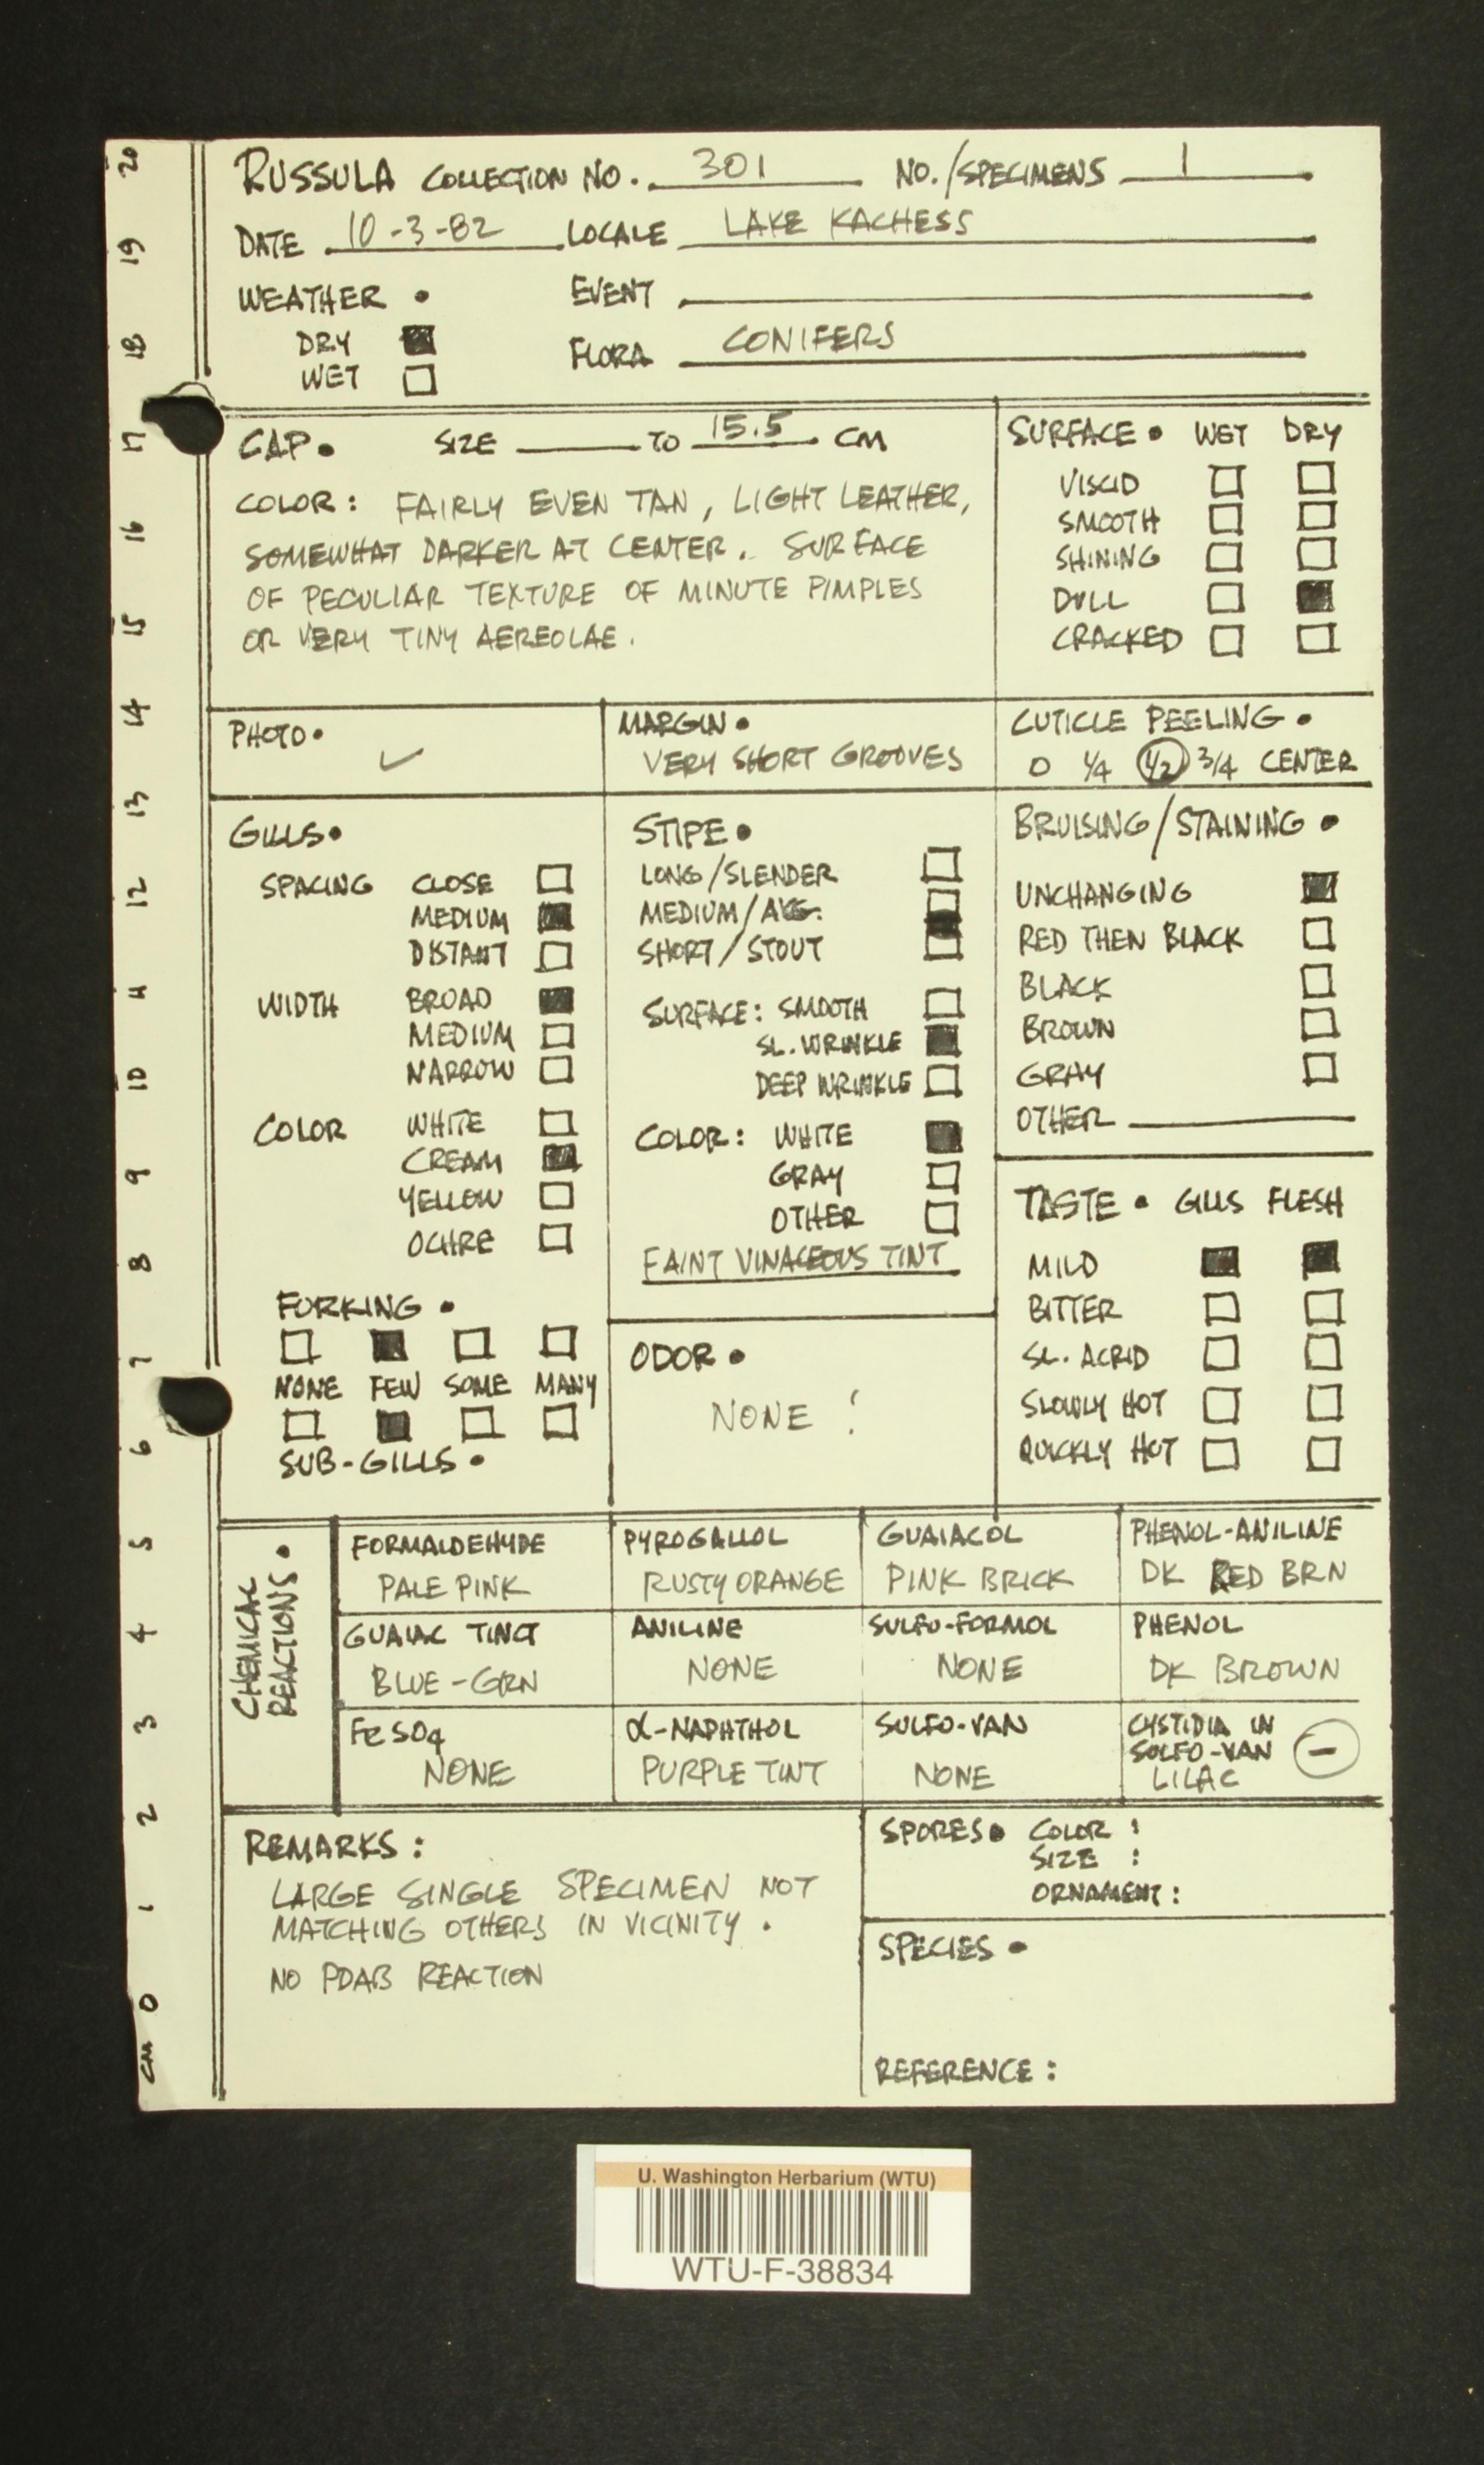 RUSSULA COLLECTION NO. 301 NO./SPECIMENS 1
DATE 10-3-82 LOCALE LAKE KACHESS
WEATHER • EVENT
DRY ■ FLORA CONIFERS
WET □
CAP • SIZE ___ TO 15.5 CM
COLOR: FAIRLY EVEN TAN, LIGHT LEATHER,
SOMEWHAT DARKER AT CENTER. SURFACE
OF PECULIAR TEXTURE OF MINUTE PIMPLES
OR VERY TINY AEREOLAE.
SURFACE • WET DRY
VISCID □ □
SMOOTH □ □
SHINING □ □
DULL □ ■
CRACKED □ □
PHOTO • ✓
MARGIN •
VERY SHORT GROOVES
CUTICLE PEELING •
0 1/4 1/2 3/4 CENTER
GILLS •
SPACING CLOSE □
MEDIUM ■
DISTANT □
WIDTH BROAD ■
MEDIUM □
NARROW □
COLOR WHITE □
CREAM ■
YELLOW □
OCHRE □
FORKING •
□ ■ □ □
NONE FEW SOME MANY
□ ■ □ □
SUB-GILLS •
STIPE •
LONG/SLENDER □
MEDIUM/AVG. □
SHORT/STOUT □
SURFACE: SMOOTH □
SL. WRINKLE ■
DEEP WRINKLE □
COLOR: WHITE ■
GRAY □
OTHER □
FAINT VINACEOUS TINT
ODOR •
NONE !
BRUISING/STAINING •
UNCHANGING ■
RED THEN BLACK □
BLACK □
BROWN □
GRAY □
OTHER
TASTE • GILLS FLESH
MILD ■ ■
BITTER □ □
SL. ACRID □ □
SLOWLY HOT □ □
QUICKLY HOT □ □
CHEMICAL
REACTIONS •
FORMALDEHYDE
PALE PINK
PYROGALLOL
RUSTY ORANGE
GUAIACOL
PINK BRICK
PHENOL-ANILINE
DK RED BRN
GUAIAC TINCT
BLUE-GRN
ANILINE
NONE
SULFO-FORMOL
NONE
PHENOL
DK BROWN
FeSO4
NONE
α-NAPHTHOL
PURPLE TINT
SULFO-VAN
NONE
CYSTIDIA IN
SULFO-VAN −
LILAC
REMARKS:
LARGE SINGLE SPECIMEN NOT
MATCHING OTHERS IN VICINITY.
NO PDAB REACTION
SPORES • COLOR:
SIZE:
ORNAMENT:
SPECIES •
REFERENCE:
20
19
18
17
16
15
14
13
12
11
10
9
8
7
6
5
4
3
2
1
0
CM
U. Washington Herbarium (WTU)
WTU-F-38834